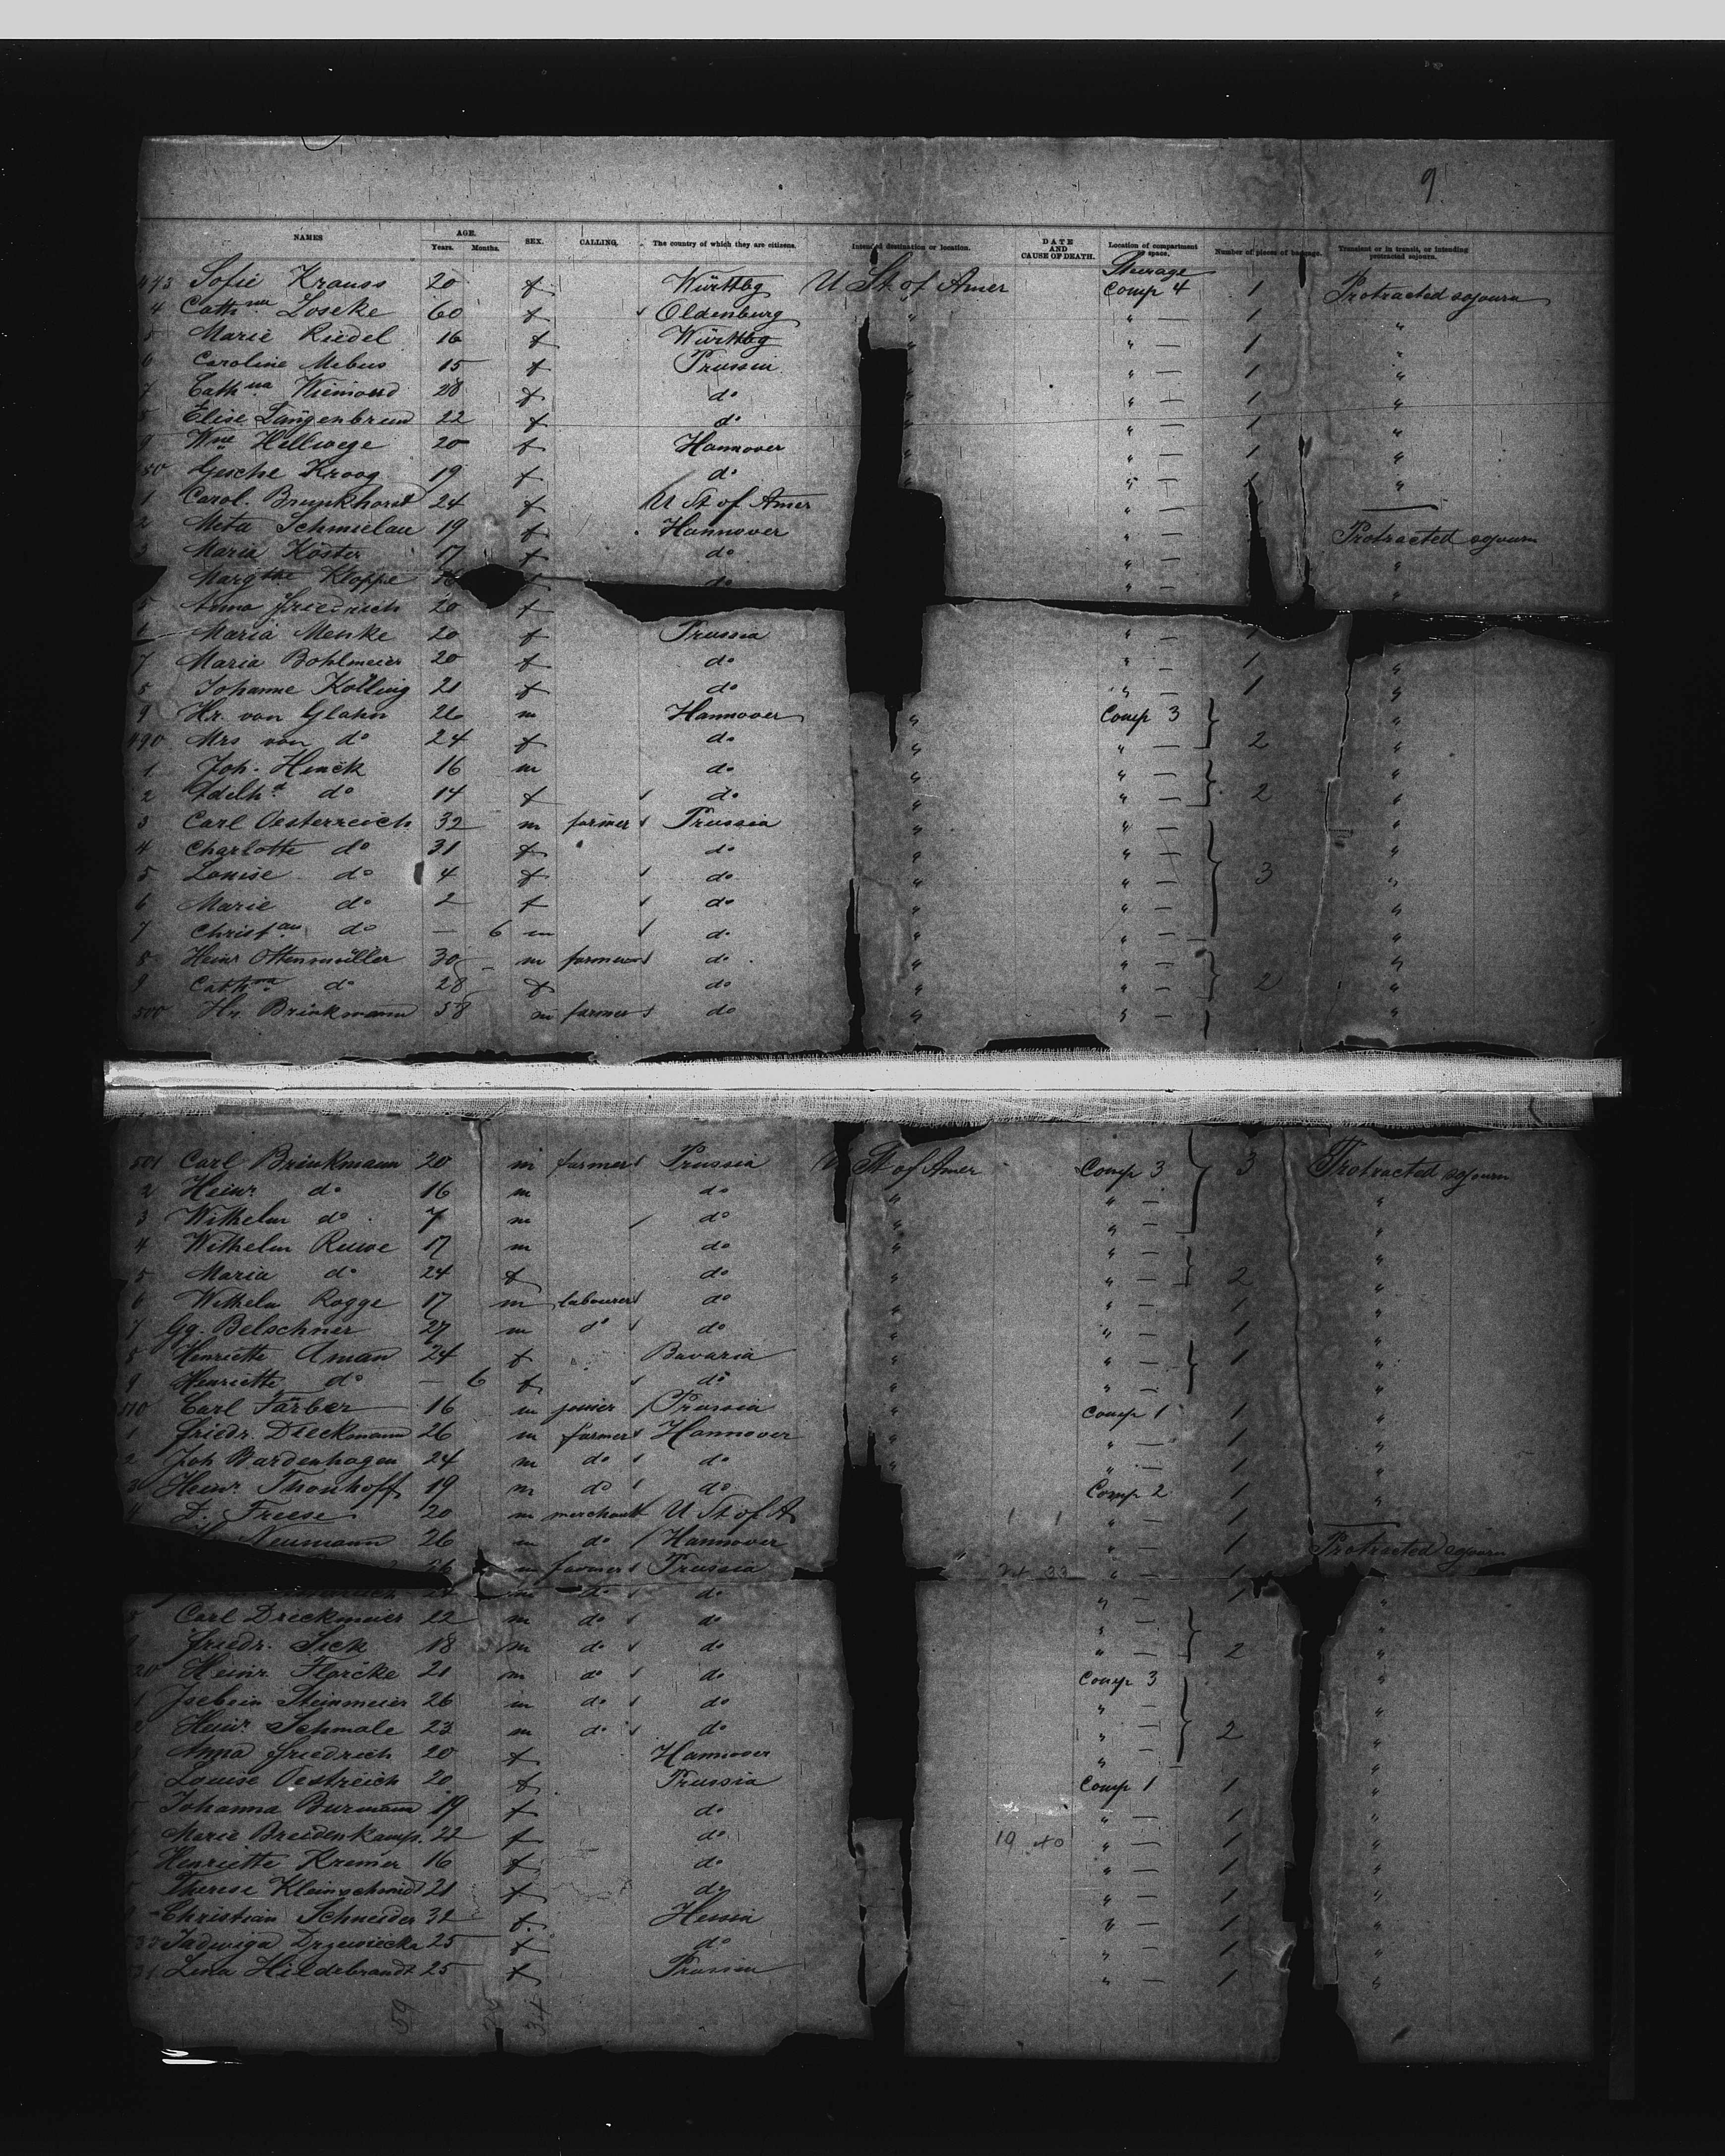 9
NAMES AGE. Years. Months. SEX. CALLING. The country of which they are citizens. Intended destination or location. DATE AND CAUSE OF DEATH. Location of compartment or space. Number of pieces of baggage. Transient or in transit, or intending protracted sojourn.
Steerage
473 Sofie Krauss 20 f Württbg U St of Amer Comp 4 1 Protracted sojourn
4 Cathna Loseke 60 f Oldenburg " " — 1 "
5 Marie Riedel 16 f Württbg " " — 1 "
6 Caroline Mebus 15 f Prussia " " — 1 "
7 Cathna 28 f do " " — 1 "
Elise Langenbrun 22 f do " " — 1 "
9 Wne Hellwege 20 f Hannover " " — 1 "
80 Gesche Kroog 19 f do " " — "
1 Carol. Brunkhorst 24 f U St of Amer " — —
2 Meta Schmielau 19 f Hannover " — Protracted sojourn
3 Maria Köster 17 f do " — "
Margthe Kloppe f do " — "
5 Anna Friedrich 20 f
6 Maria Menke 20 f Prussia " —
7 Maria Bohlmeier 20 f do " — 1 "
8 Johanne Kölling 21 f do " — 1 "
9 Hr. von Glahn 26 m Hannover " Comp 3 "
490 Mrs von do 24 f do " " — 2 "
1 Joh. Hinck 16 m do " " — "
2 Adelhd do 14 f do " " — 2 "
3 Carl Oesterreich 32 m farmer Prussia " " — "
4 Charlotte do 31 f do " " — "
5 Louise do 4 f do " " — 3 "
6 Marie do 2 f do " " — "
7 Christan do — 6 m do " " — "
8 Heinr Ottensmüller 30 m farmer do " " — "
9 Cathna do 28 f do " " — 2 "
500 Hr. Brinkmann 58 m farmer do " " — "
501 Carl Brinkmann 20 m farmer Prussia U St of Amer Comp 3 3 Protracted sojourn
2 Heinr do 16 m do " " — "
3 Wilhelm do 7 m do " " — "
4 Wilhelm Ruwe 17 m do " " — "
5 Maria do 24 f do " " — 2 "
6 Wilhelm Rogge 17 m labourer do " " — 1 "
7 Gg. Belschner 27 m do do " " — 1 "
8 Henriette Aman 24 f Bavaria " " — 1 "
9 Henriette do — 6 f do " " — "
510 Carl Färber 16 m joiner Prussia " Comp 1 1 "
1 Friedr. Dieckmann 26 m farmer Hannover " " — 1 "
2 Joh Wardenhagen 24 m do do " " — 1 "
3 Heinr Thonhoff 19 m do do Comp 2 1 "
4 D. Freese 20 m merchant U St of A " — 1 —
Neumann 26 m do Hannover " " — 1 Protracted sojourn
26 m farmer Prussia " — 1
m do do " — 1 "
Carl Dreckmeier 22 m do do " — "
Friedr. Sick 18 m do do " — 2 "
20 Heinr. Florcke 21 m do do Comp 3 "
1 Jsebein Steinmeier 26 m do do " — "
2 Heinr Schmale 23 m do do " — 2 "
3 Anna Friedrich 20 f Hannover " — "
Louise Oestreich 20 f Prussia Comp 1 1 "
Johanna Burmann 19 f do " — 1 "
Marie Breidenkamp. 22 f do 19 40 " — 1 "
Henriette Kremer 16 f do " — 1 "
Therese Kleinschmidt 21 f do " — 1 "
Christian Schneider 32 f Hessia " — 1 "
Jadwiga Drzewiecka 25 f do " — 1 "
31 Lena Hildebrandt 25 f Prussia " — 1 "
59 34